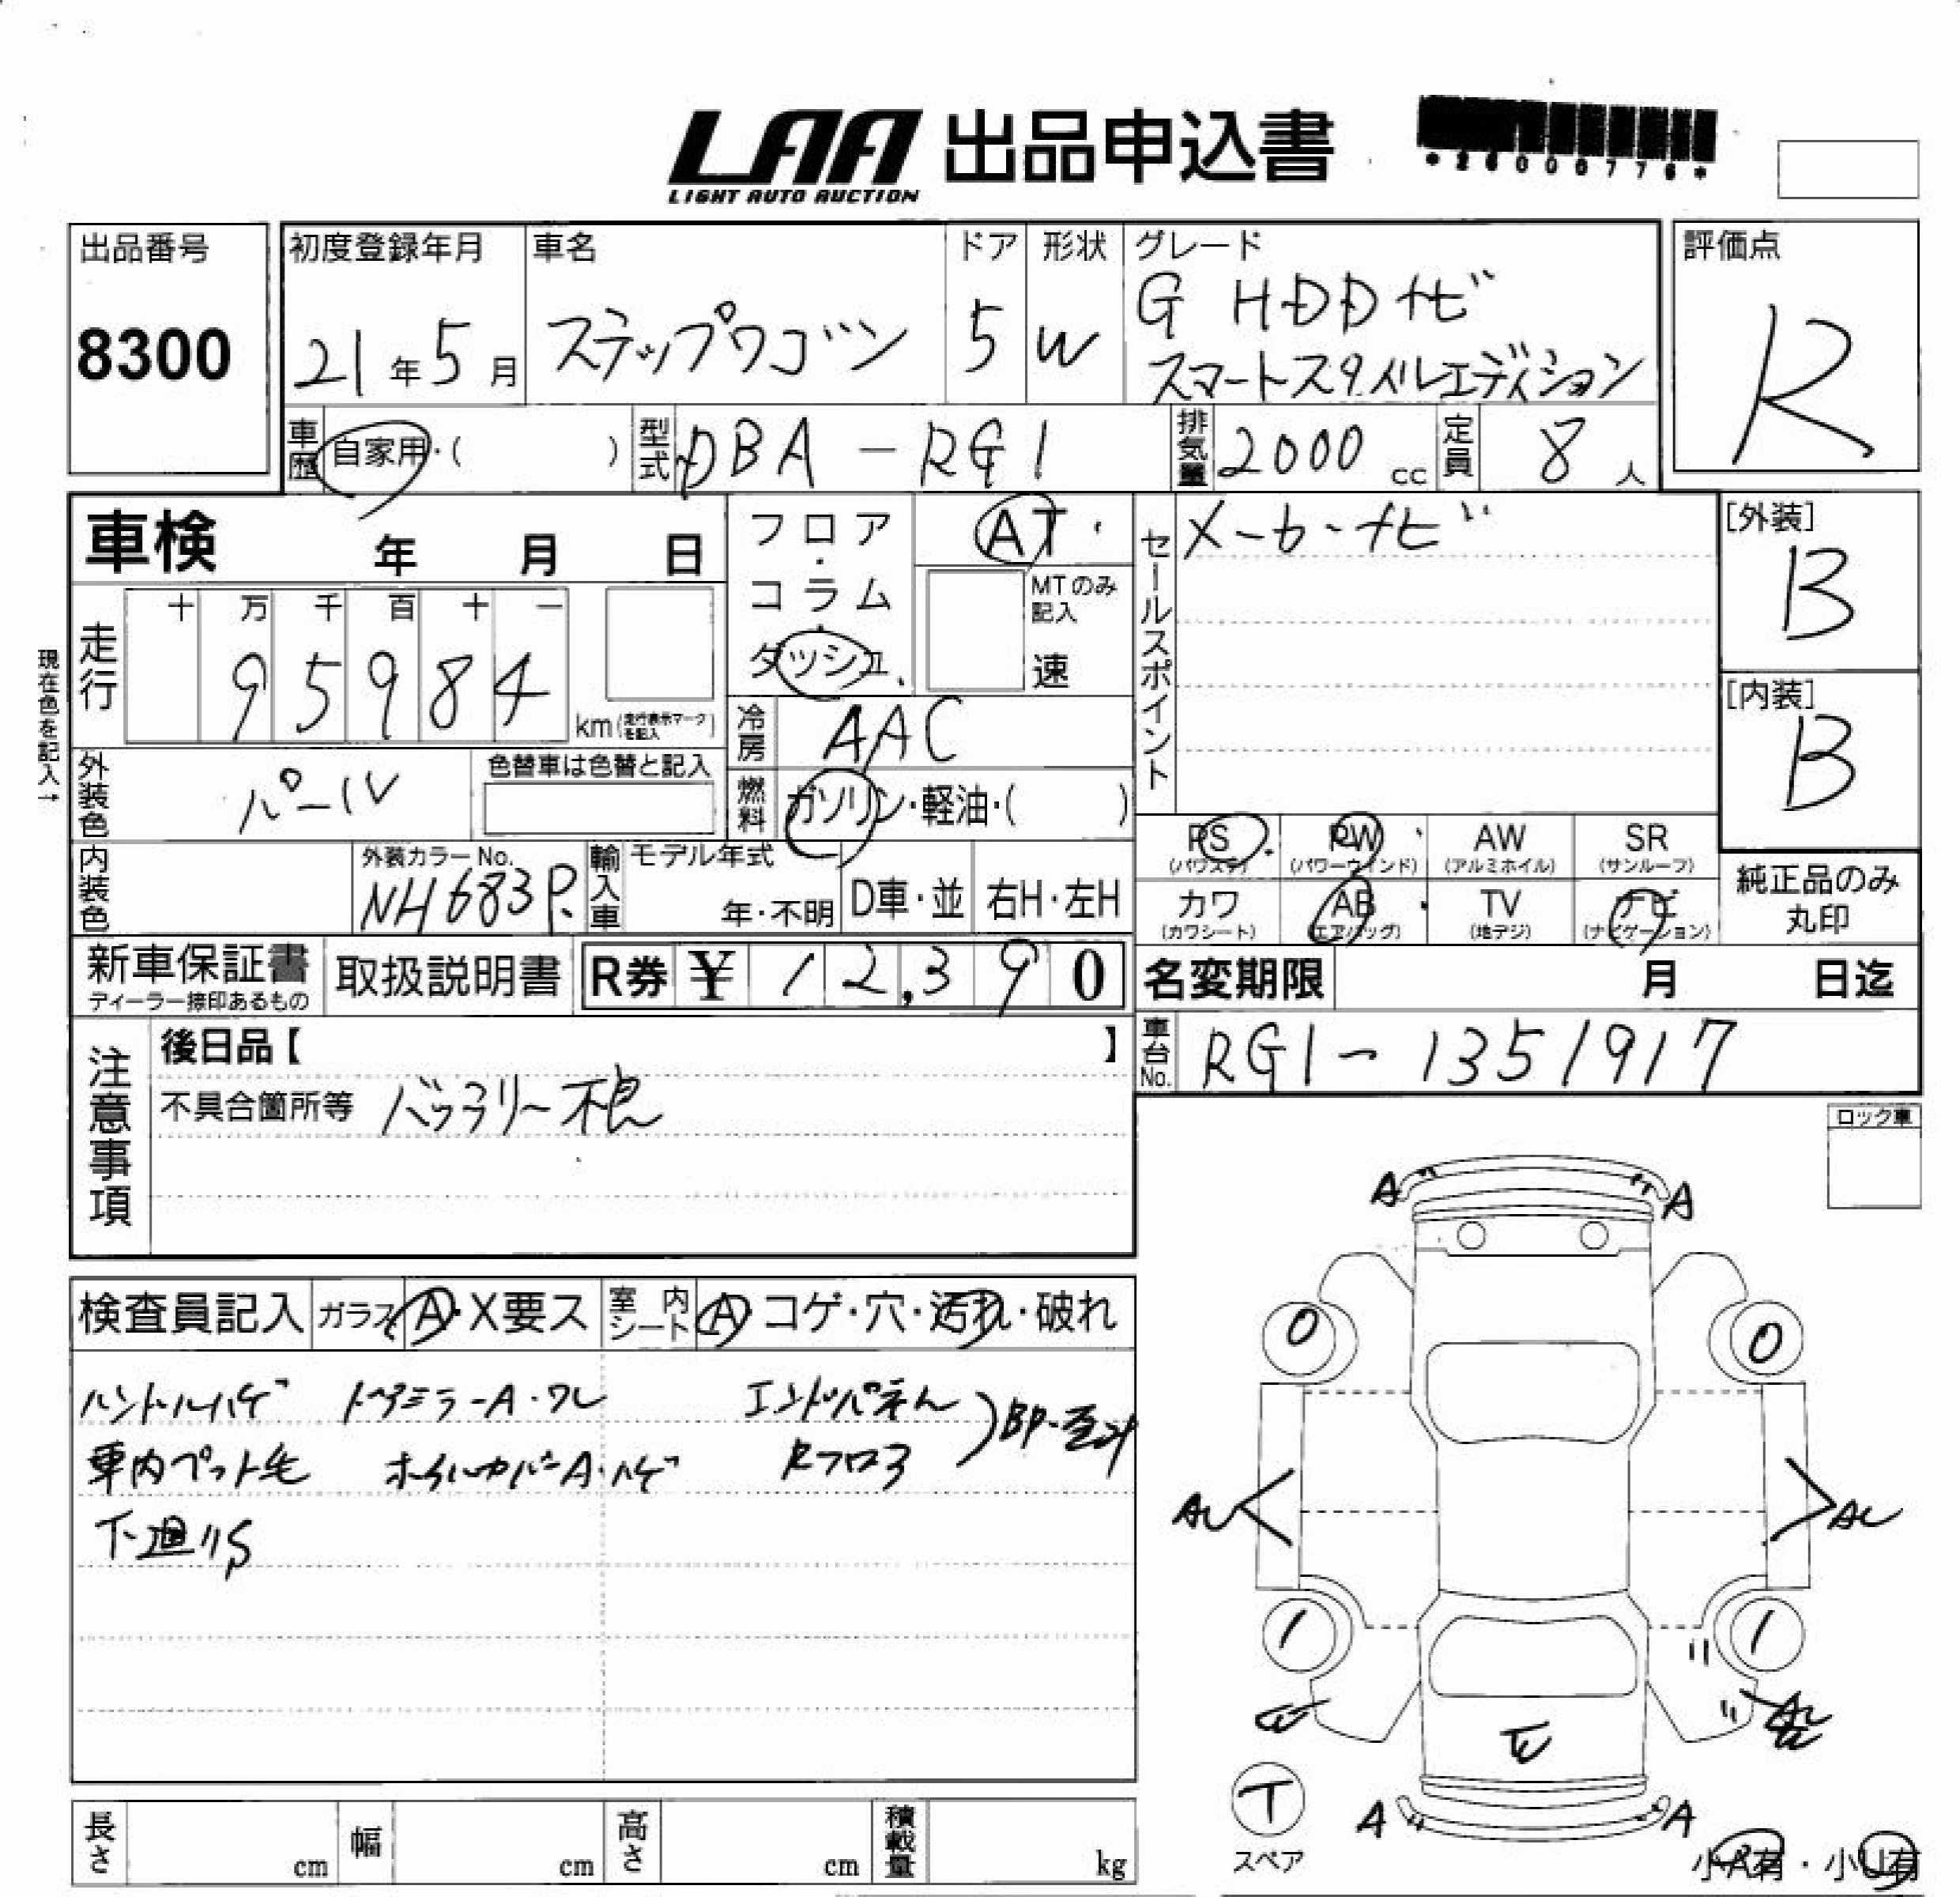 LAA 出品申込書
LIGHT AUTO AUCTION
出品番号 初度登録年月 車名 ドア 形状 グレード 評価点
8300 21年5月 ステップワゴン 5 W G HDDナビ R
スマートスタイルエディション
車歴 自家用・( ) 型式 DBA-RG1 排気量 2000cc 定員 8人
車検 年 月 日 フロア・コラム・ダッシュ AT・ セールスポイント メーカーナビ [外装] B
MTのみ記入
速
現在色を記入→
走行 十 万 千 百 十 一
95984 km(走行表示マークを記入)
[内装] B
冷房 AAC
外装色 パール 色替車は色替と記入 燃料 ガソリン・軽油・( )
PS・(パワステ) PW・(パワーウインド) AW(アルミホイル) SR(サンルーフ)
内装色 外装カラーNo. NH683P. 輸入車 モデル年式 年・不明 D車・並 右H・左H
カワ(カワシート) AB・(エアバッグ) TV(地デジ) ナビ(ナビゲーション) 純正品のみ丸印
新車保証書 ディーラー捺印あるもの 取扱説明書 R券 ¥12,390 名変期限 月 日迄
注意事項 後日品【 】 車台No. RG1-1351917
不具合箇所等 バッテリー不良
ロック車
A A
検査員記入 ガラス A・X要ス 室内シート A・コゲ・穴・汚れ・破れ
0 0
ハンドルハゲ ドアミラーA・ワレ エンドパネル
車内ペット毛 ホイルカバーA・ハゲ Rフロア
下廻りS
1 1
T
スペア
A A
小A有・小U有
長さ cm 幅 cm 高さ cm 積載量 kg